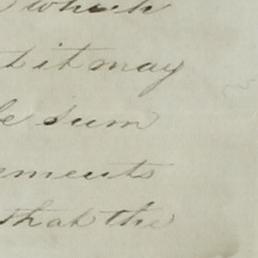 which
it may
sum
ements
that the